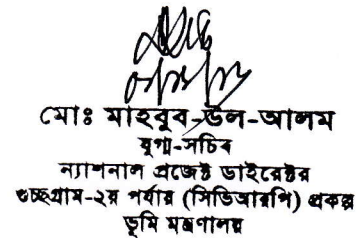 মোঃ মাহবুব-উল-আলম
যুগ্ম-সচিব
ন্যাশনাল প্রজেক্ট ডাইরেক্টর
গুচ্ছগ্রাম-২য় পর্যায় (সিভিআরপি) প্রকল্প
ভূমি মন্ত্রণালয়